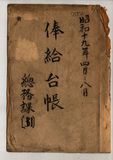 昭和十九年四月八月
俸給台帳
總務課